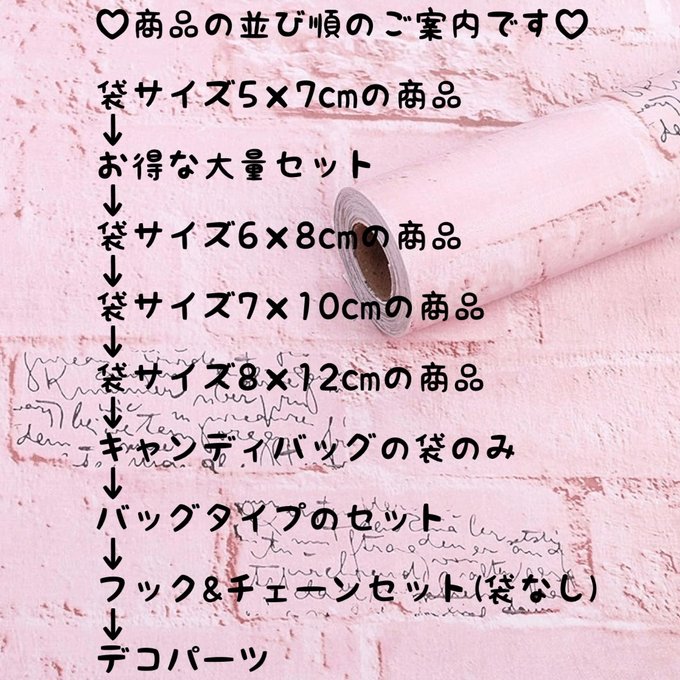 ♡商品の並び順のご案内です♡
袋サイズ5×7cmの商品
↓
お得な大量セット
↓
袋サイズ6×8cmの商品
↓
袋サイズ7×10cmの商品
↓
袋サイズ8×12cmの商品
↓
キャンディバッグの袋のみ
↓
バッグタイプのセット
↓
フック&チェーンセット(袋なし)
↓
デコパーツ